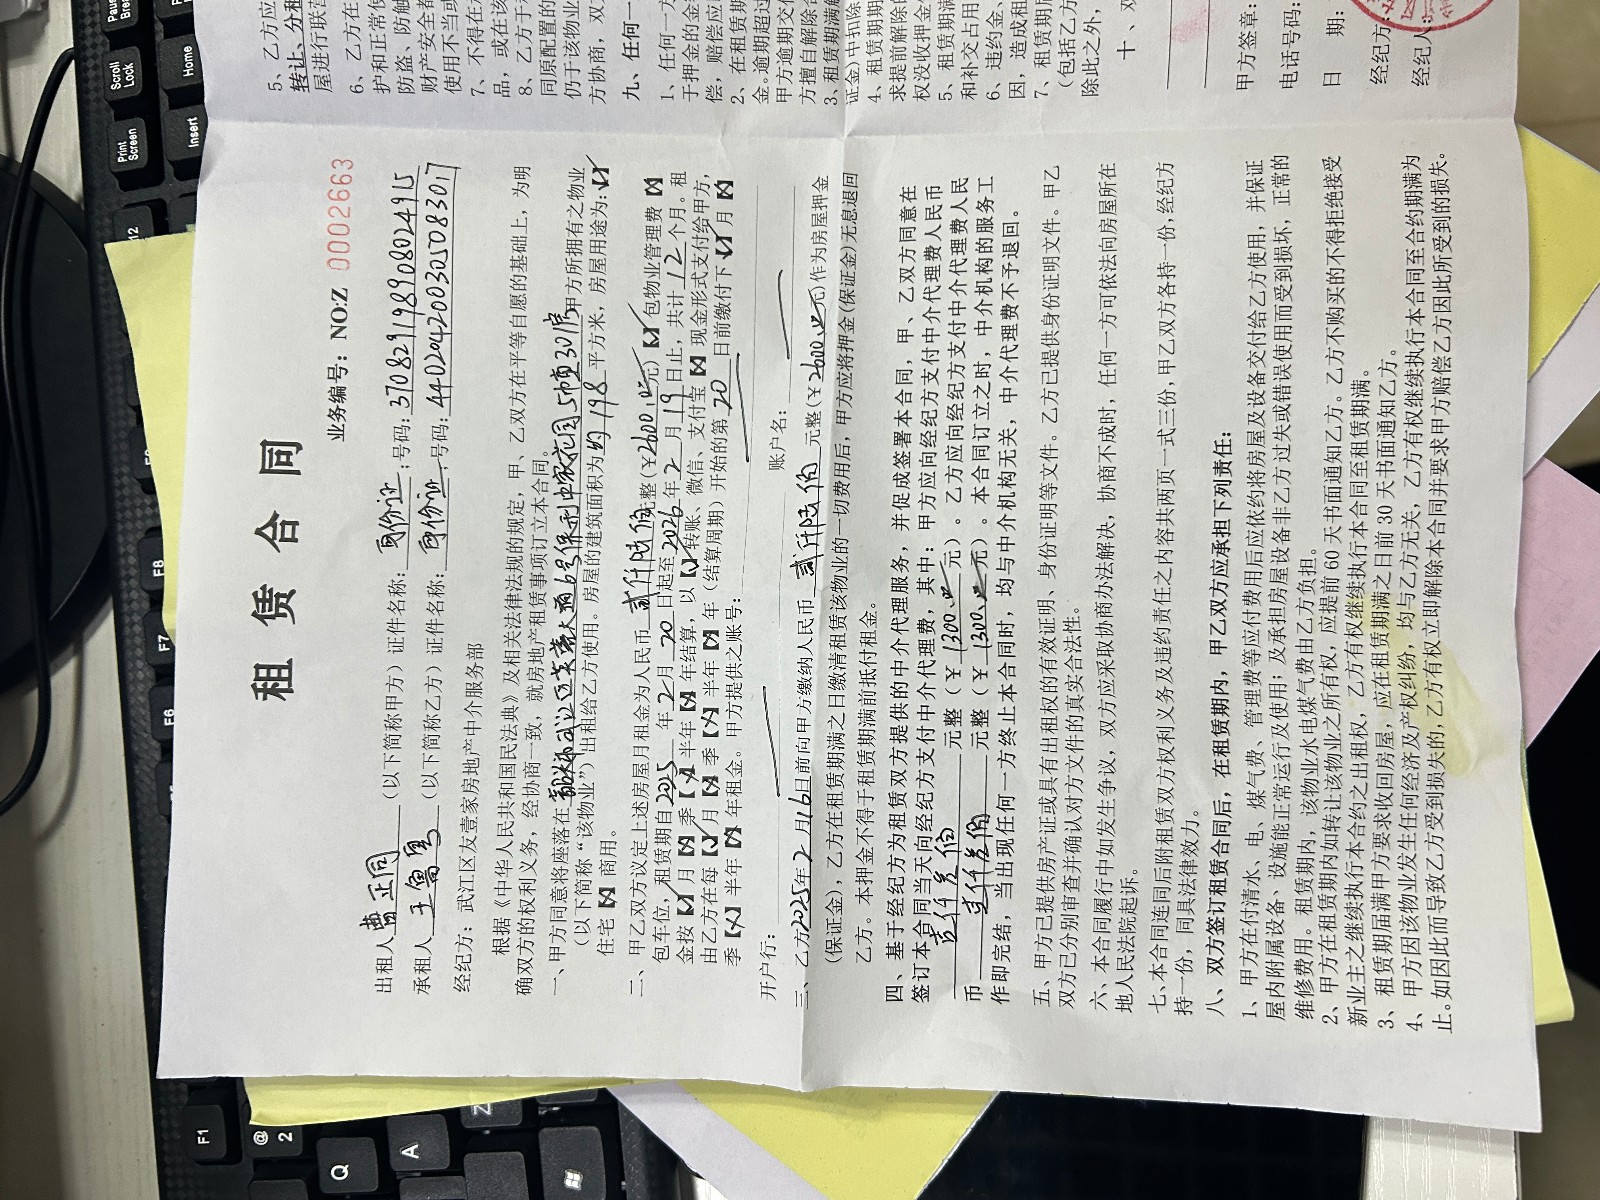 租 赁 合 同
业务编号：NO:Z 0002663
出租人 曹正同 （以下简称甲方）证件名称：身份证；号码：370829198908024915
承租人 （以下简称乙方）证件名称：身份证；号码：440204200305083017
经纪方：武江区友壹家房地产中介服务部
根据《中华人民共和国民法典》及相关法律法规的规定，甲、乙双方在平等自愿的基础上，为明
确双方的权利义务，经协商一致，就房地产租赁事项订立本合同。
一、甲方同意将座落在 6号保利中宸花园5幢30房 甲方所拥有之物业
（以下简称“该物业”）出租给乙方使用。房屋的建筑面积为 约198 平方米，房屋用途为：【✓】
住宅【×】商用。
二、甲乙双方议定上述房屋月租金为人民币 贰仟陆佰 元整（￥2600.00元）【✓】包物业管理费【×】
包车位，租赁期自 2025 年 2 月 20 日起至 2026 年 2 月 19 日止，共计 12 个月。租
金按【✓】月【×】季【×】半年【×】年结算，以【✓】转账、微信、支付宝【×】现金形式支付给甲方，
由乙方在每【✓】月【×】季【×】半年【×】年（结算周期）开始的第 20 日前缴付下【✓】月【×】
季【×】半年【×】年租金。甲方提供之账号：
开户行： 账户名：
三、乙方 2025年2月16日前向甲方缴纳人民币 贰仟陆佰 元整（￥2600.00元）作为房屋押金
（保证金），乙方在租赁期满之日缴清租赁该物业的一切费用后，甲方应将押金（保证金）无息退回
乙方。本押金不得于租赁期满前抵付租金。
四、基于经纪方为租赁双方提供的中介代理服务，并促成签署本合同，甲、乙双方同意在
签订本合同当天向经纪方支付中介代理费，其中：甲方应向经纪方支付中介代理费人民币
壹仟叁佰 元整（￥1300.00元）。乙方应向经纪方支付中介代理费人民
币 壹仟叁佰 元整（￥1300.00元）。本合同订立之时，中介机构的服务工
作即完结，当出现任何一方终止本合同时，均与中介机构无关，中介代理费不予退回。
五、甲方已提供房产证或具有出租权的有效证明、身份证明等文件。乙方已提供身份证明文件。甲乙
双方已分别审查并确认对方文件的真实合法性。
六、本合同履行中如发生争议，双方应采取协商办法解决，协商不成时，任何一方可依法向房屋所在
地人民法院起诉。
七、本合同连同后附租赁双方权利义务及违约责任之内容共两页一式三份，甲乙双方各持一份，经纪方
持一份，同具法律效力。
八、双方签订租赁合同后，在租赁期内，甲乙双方应承担下列责任：
1、甲方在付清水、电、煤气费、管理费等应付费用后应依约将房屋及设备交付给乙方使用，并保证
屋内附属设备、设施能正常运行及使用；及承担房屋设备非乙方过失或错误使用而受到损坏，正常的
维修费用。租赁期内，该物业水电煤气费由乙方负担。
2、甲方在租赁期内如转让该物业之所有权，应提前 60 天书面通知乙方。乙方不购买的不得拒绝接受
新业主之继续执行本合约之出租权，乙方有权继续执行本合同至租赁期满。
3、租赁期届满甲方要求收回房屋，应在租赁期满之日前 30 天书面通知乙方。
4、甲方因该物业发生任何经济及产权纠纷，均与乙方无关，乙方有权继续执行本合同至合约期满为
止。如因此而导致乙方受到损失的，乙方有权立即解除本合同并要求甲方赔偿乙方因此所受到的损失。
5、乙方应
转让、分租
屋进行联营
6、乙方在
护和正常使
防盗、防触
财产安全者
使用不当或
7、不得在
品，或在该
8、乙方于
同原配置的
仍于该物业
方协商，双
九、任何一
1、任何一方
于押金的金
偿，赔偿应
2、在租赁期
金。逾期超过
甲方逾期交付
方擅自解除合
3、租赁期满
证金）中扣除
4、租赁期期
求提前解除的
权没收押金
5、租赁期满
和补交占用
6、违约金、
因，造成租
7、租赁期
（包括乙方
除此之外，
十、双
甲方签章：
电话号码：
日 期：
经纪方
经纪人
Print Screen
Scroll Lock
Pause
Insert
Home
F1
F6
F7
F8
F9
12
@
2
Q
A
Z